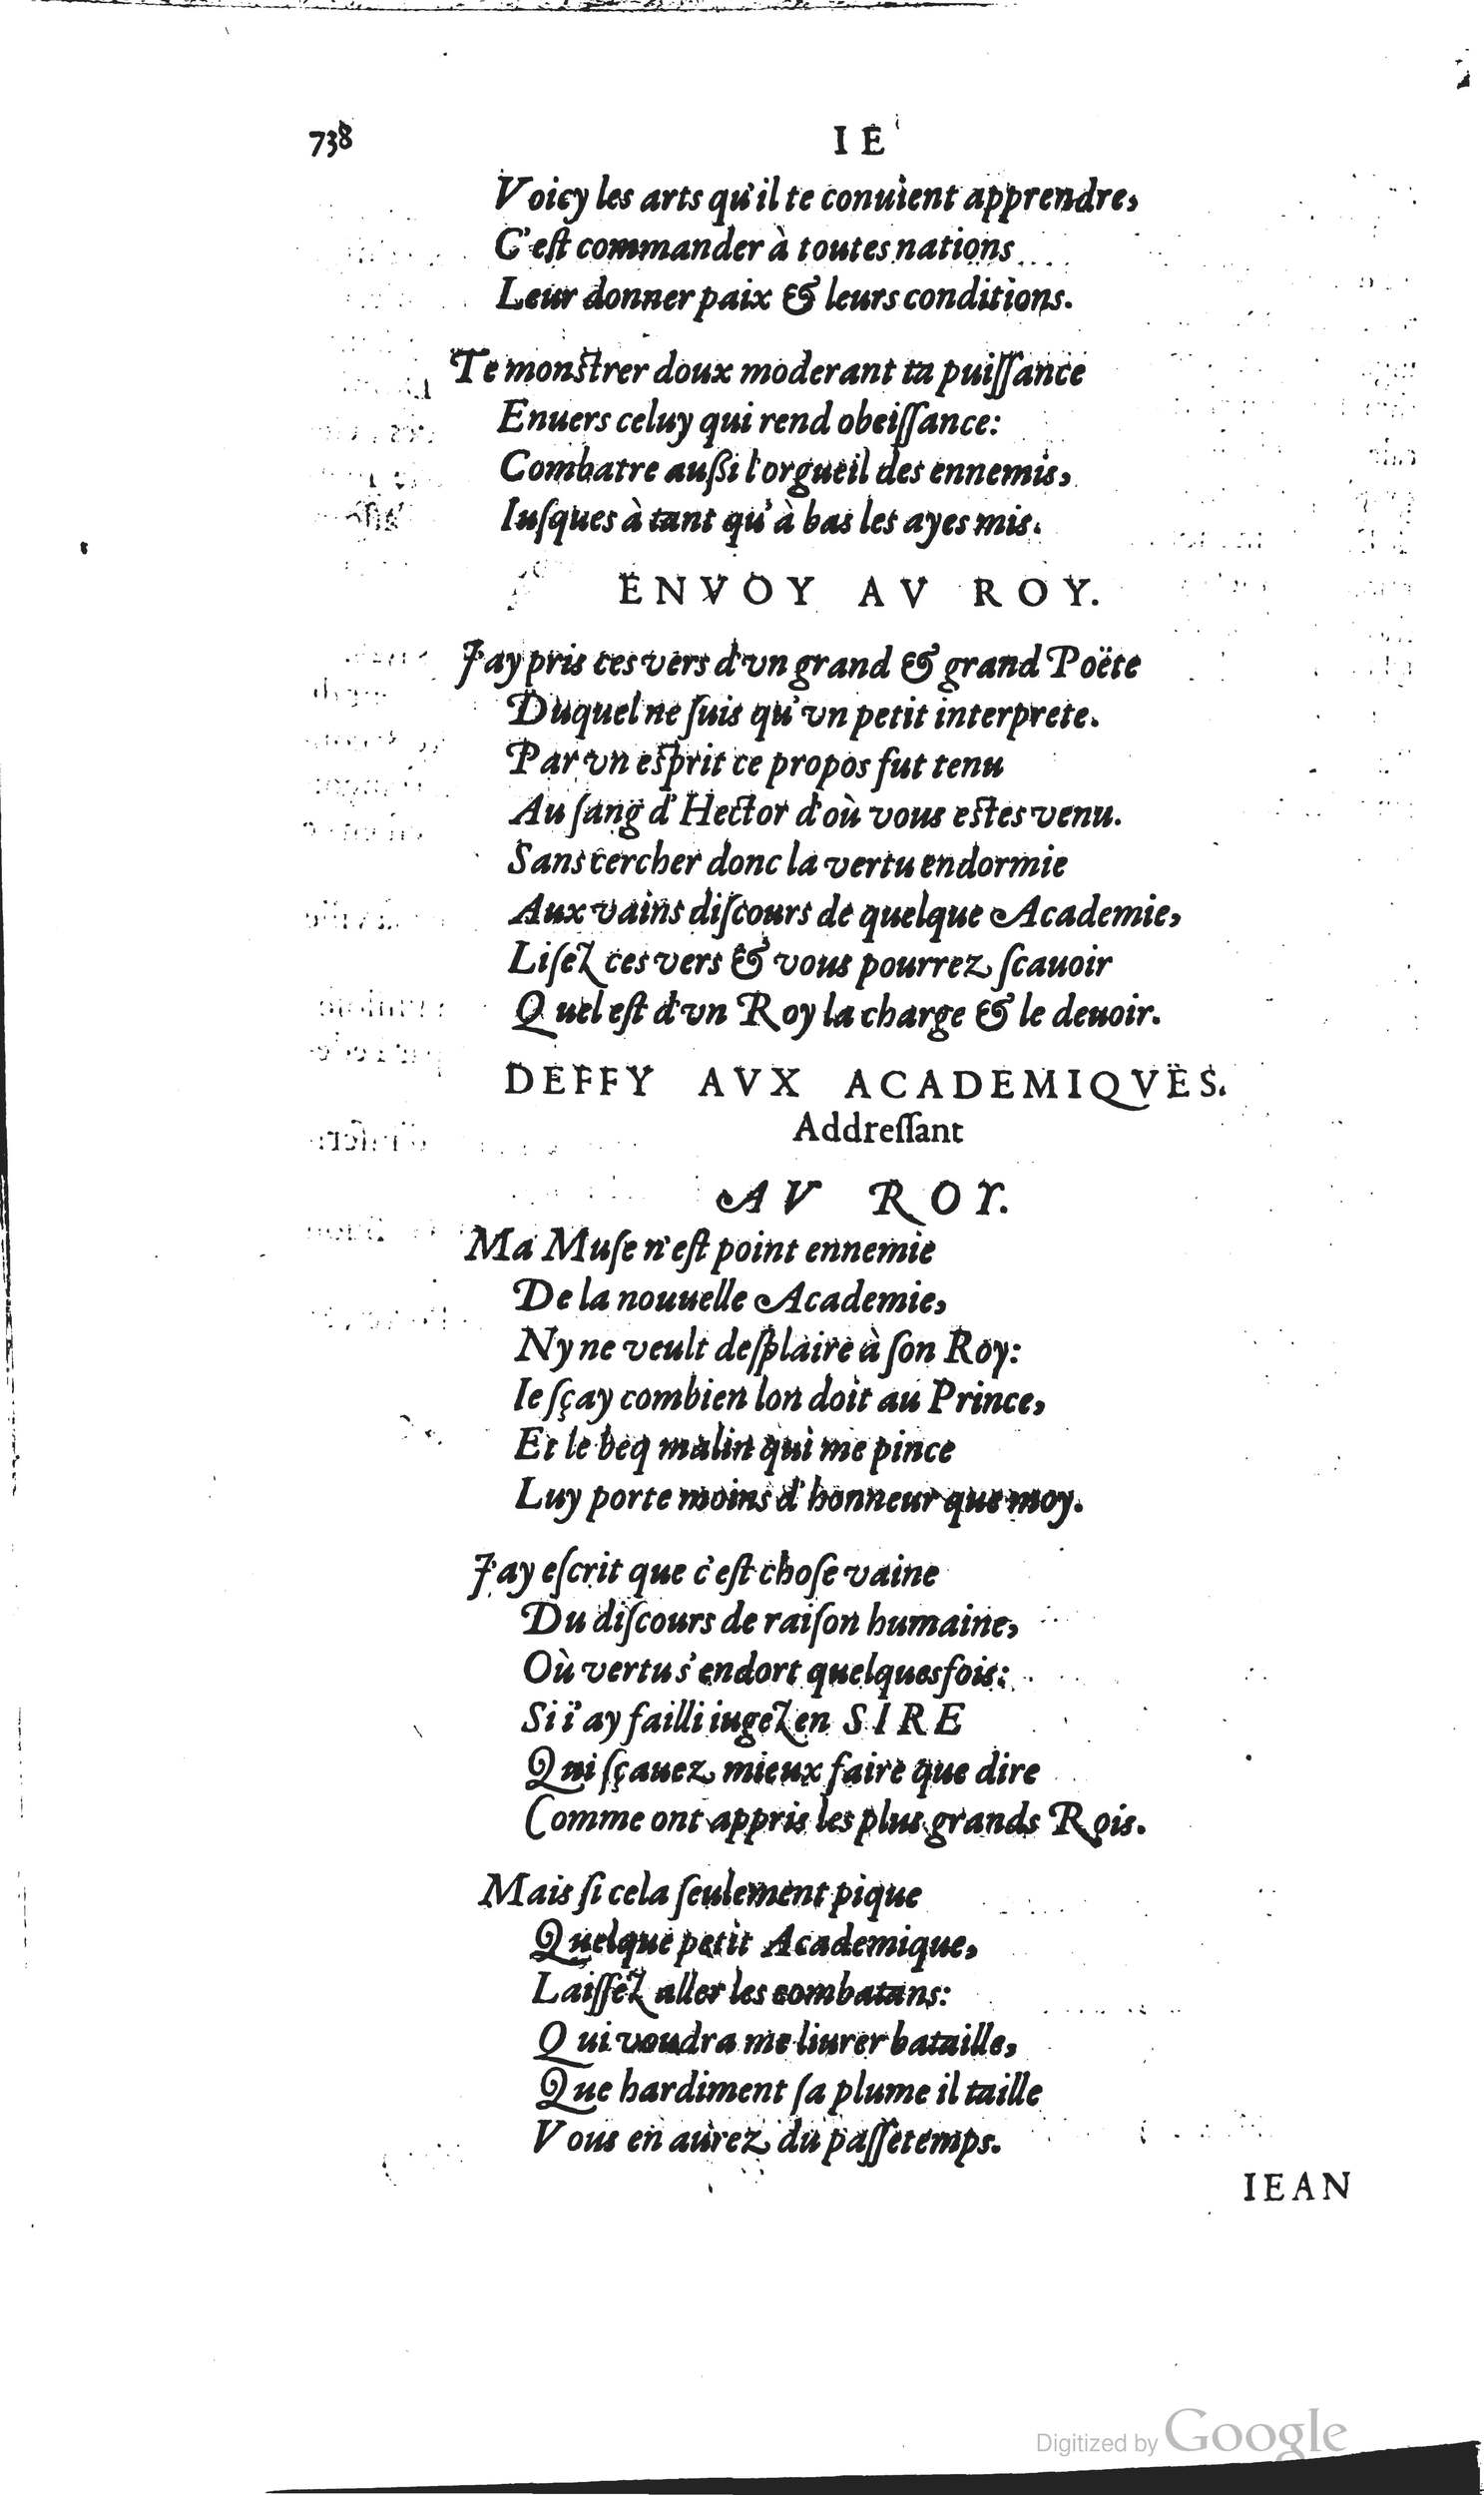 738 IE
Voicy les arts qu'il te conuient apprendre,
C'eſt commander à toutes nations
Leur donner paix & leurs conditions.
Te monſtrer doux moderant ta puiſſance
Enuers celuy qui rend obeiſſance:
Combatre auſsi l'orgueil des ennemis,
Iuſques à tant qu'à bas les ayes mis.
ENVOY AV ROY.
J'ay pris ces vers d'vn grand & grand Poëte
Duquel ne ſuis qu'vn petit interprete.
Par vn eſprit ce propos fut tenu
Au ſang d'Hector d'où vous eſtes venu.
Sans cercher donc la vertu endormie
Aux vains diſcours de quelque Academie,
Liſez ces vers & vous pourrez ſcauoir
Quel eſt d'vn Roy la charge & le deuoir.
DEFFY AVX ACADEMIQVËS.
Addreſſant
AV ROY.
Ma Muſe n'eſt point ennemie
De la nouuelle Academie,
Ny ne veult deſplaire à ſon Roy:
Ie ſçay combien lon doit au Prince,
Et le beq malin qui me pince
Luy porte moins d'honneur que moy.
J'ay eſcrit que c'eſt choſe vaine
Du diſcours de raiſon humaine,
Où vertu s'endort quelquesfois:
Si i'ay failli iugez en SIRE
Qui ſçauez mieux faire que dire
Comme ont appris les plus grands Rois.
Mais ſi cela ſeulement pique
Quelque petit Academique,
Laiſſez aller les combatans:
Qui voudra me liurer bataille,
Que hardiment ſa plume il taille
Vous en aurez du paſſetemps.
IEAN
Digitized by Google